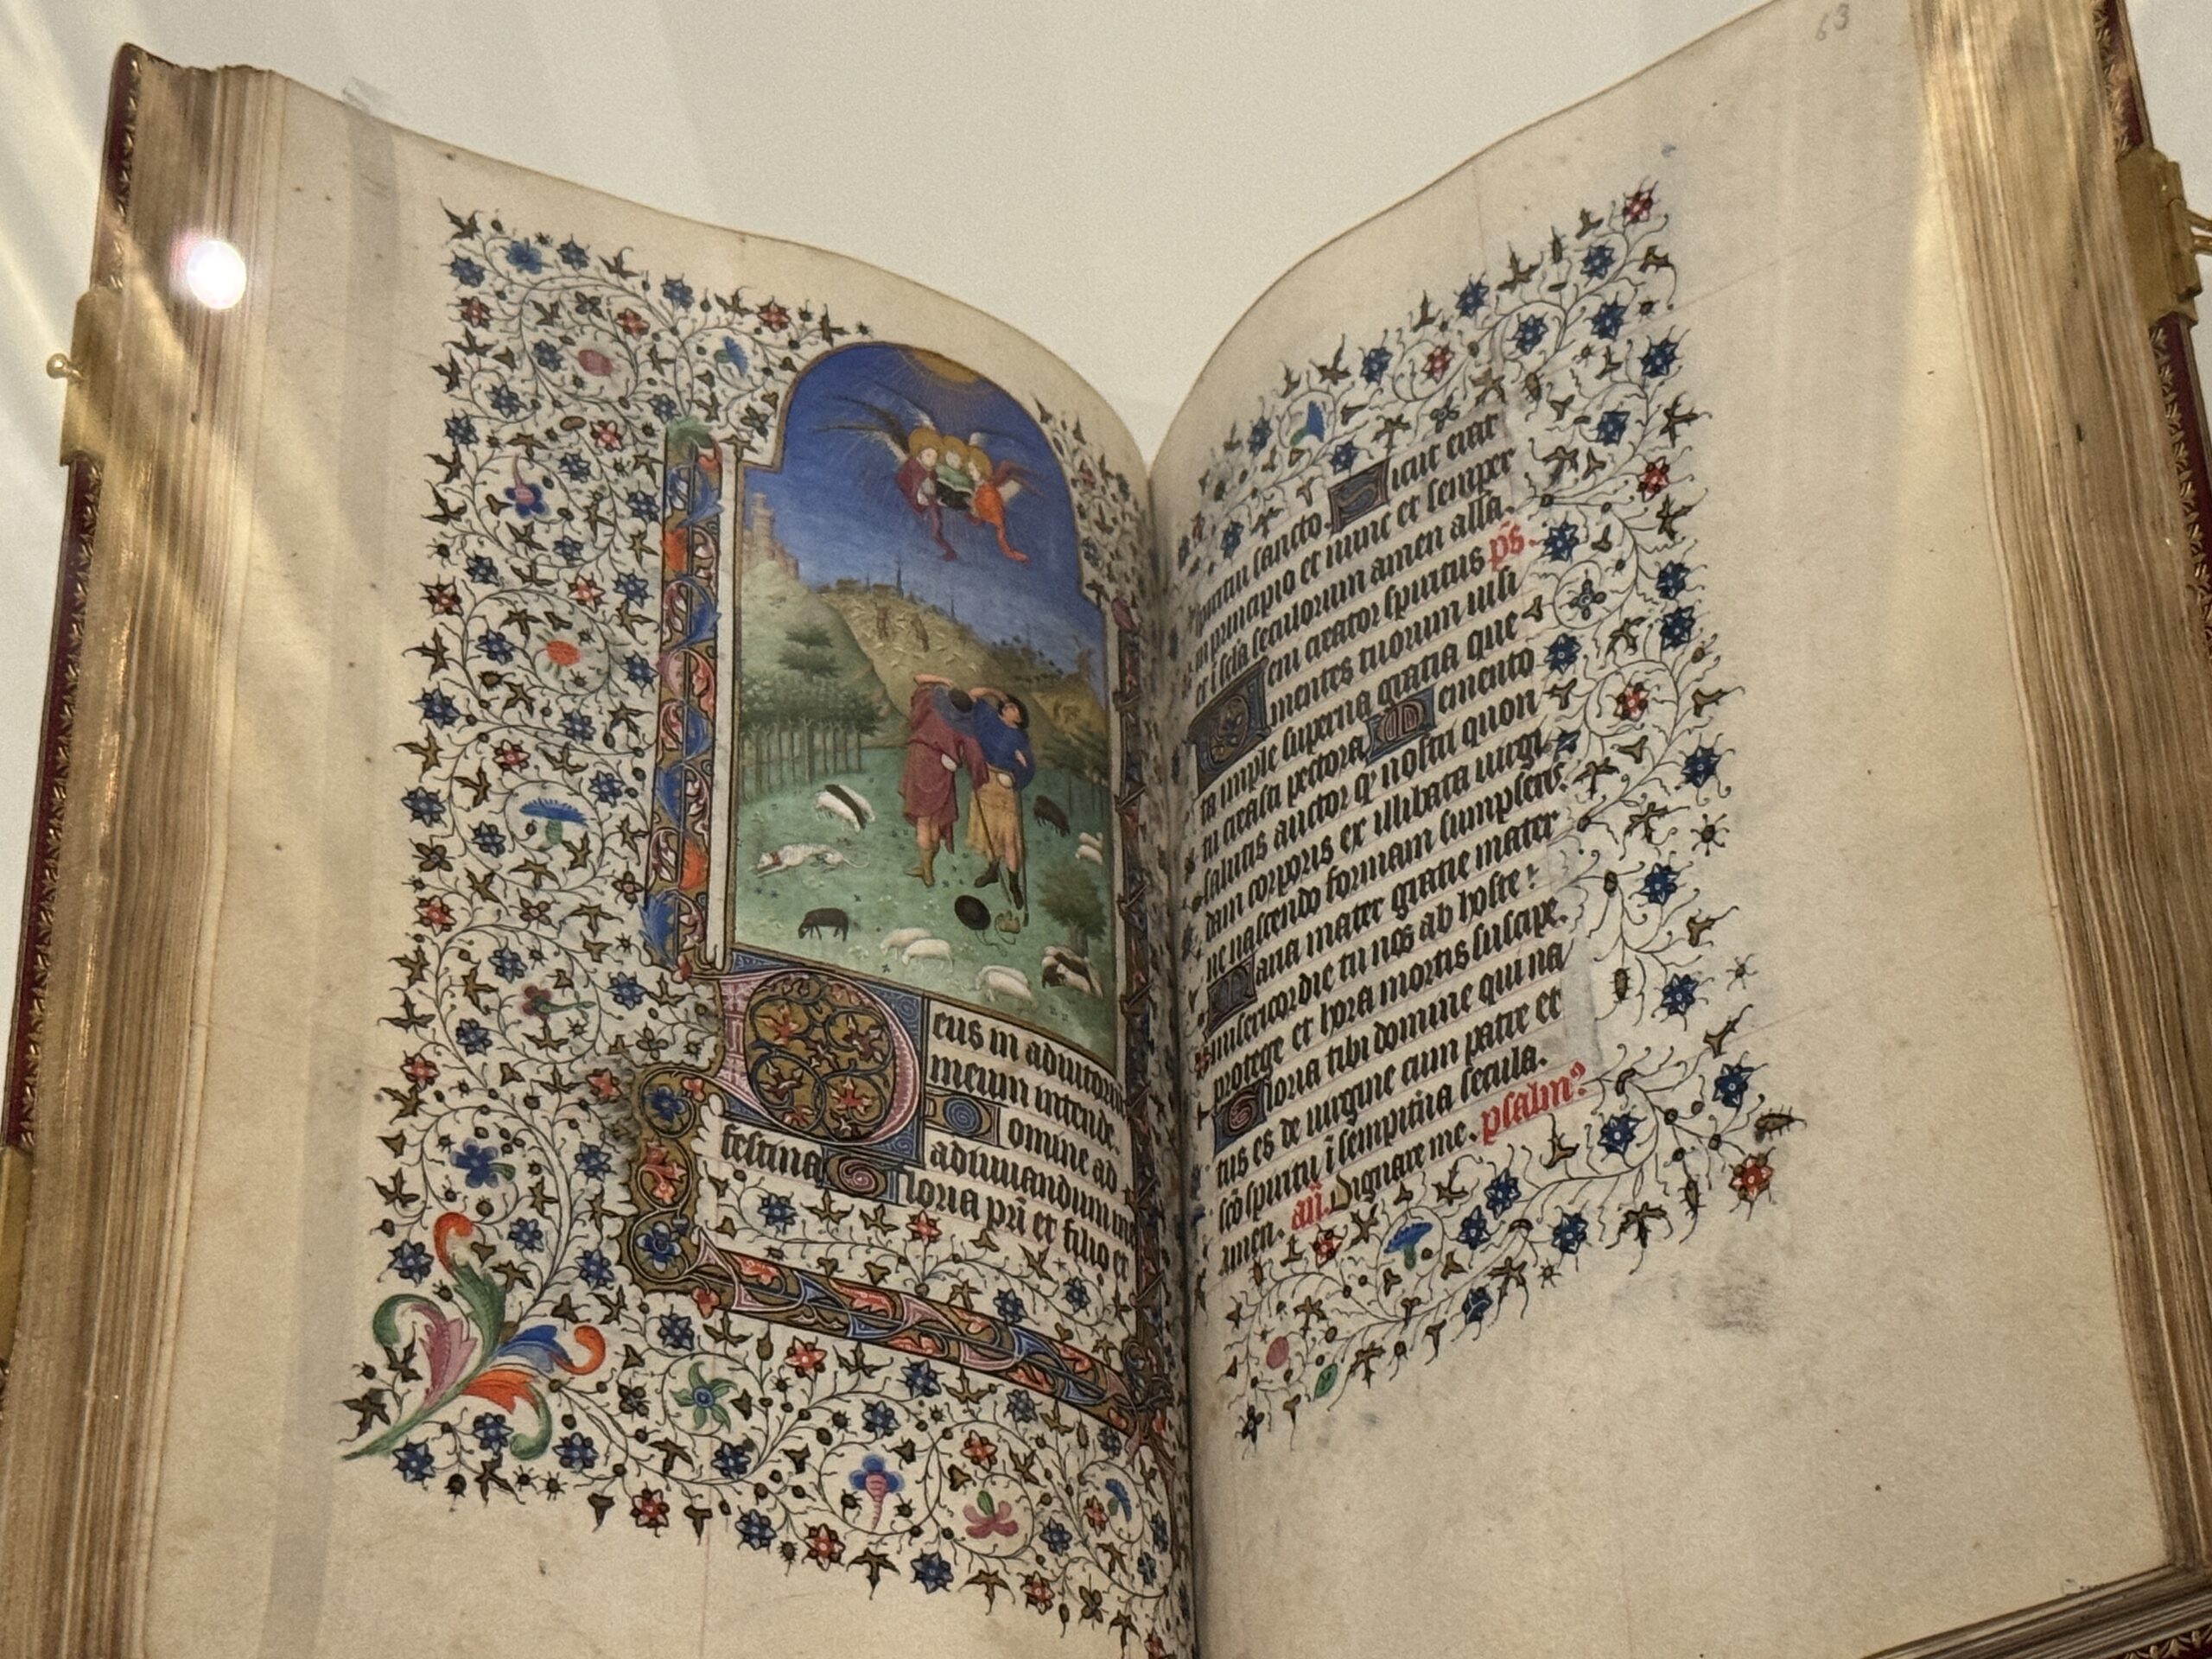 Deus in adiutoriu
meum intende.
omine ad
adiuuandum me
festina Gloria pr̄i et filio et
63
spiritui sancto. Sicut erat
in principio et nunc et semper
et ī scl̄a seculorum amen all̄a.
Veni creator spiritus ps̄.
mentes tuorum uisi
ta imple superna gratia que
tu creasti pectora Memento
salutis auctor q nostri quon
dam corporis ex illibata uirgi
ne nascendo formam sumpseris.
Maria mater gratie mater
misericordie tu nos ab hoste
protege et hora mortis suscipe.
Gloria tibi domine qui na
tus es de uirgine cum patre et
sc̄o spiritu ī sempiterna secula.
amen. an̄. Dignare me. psalm⁹